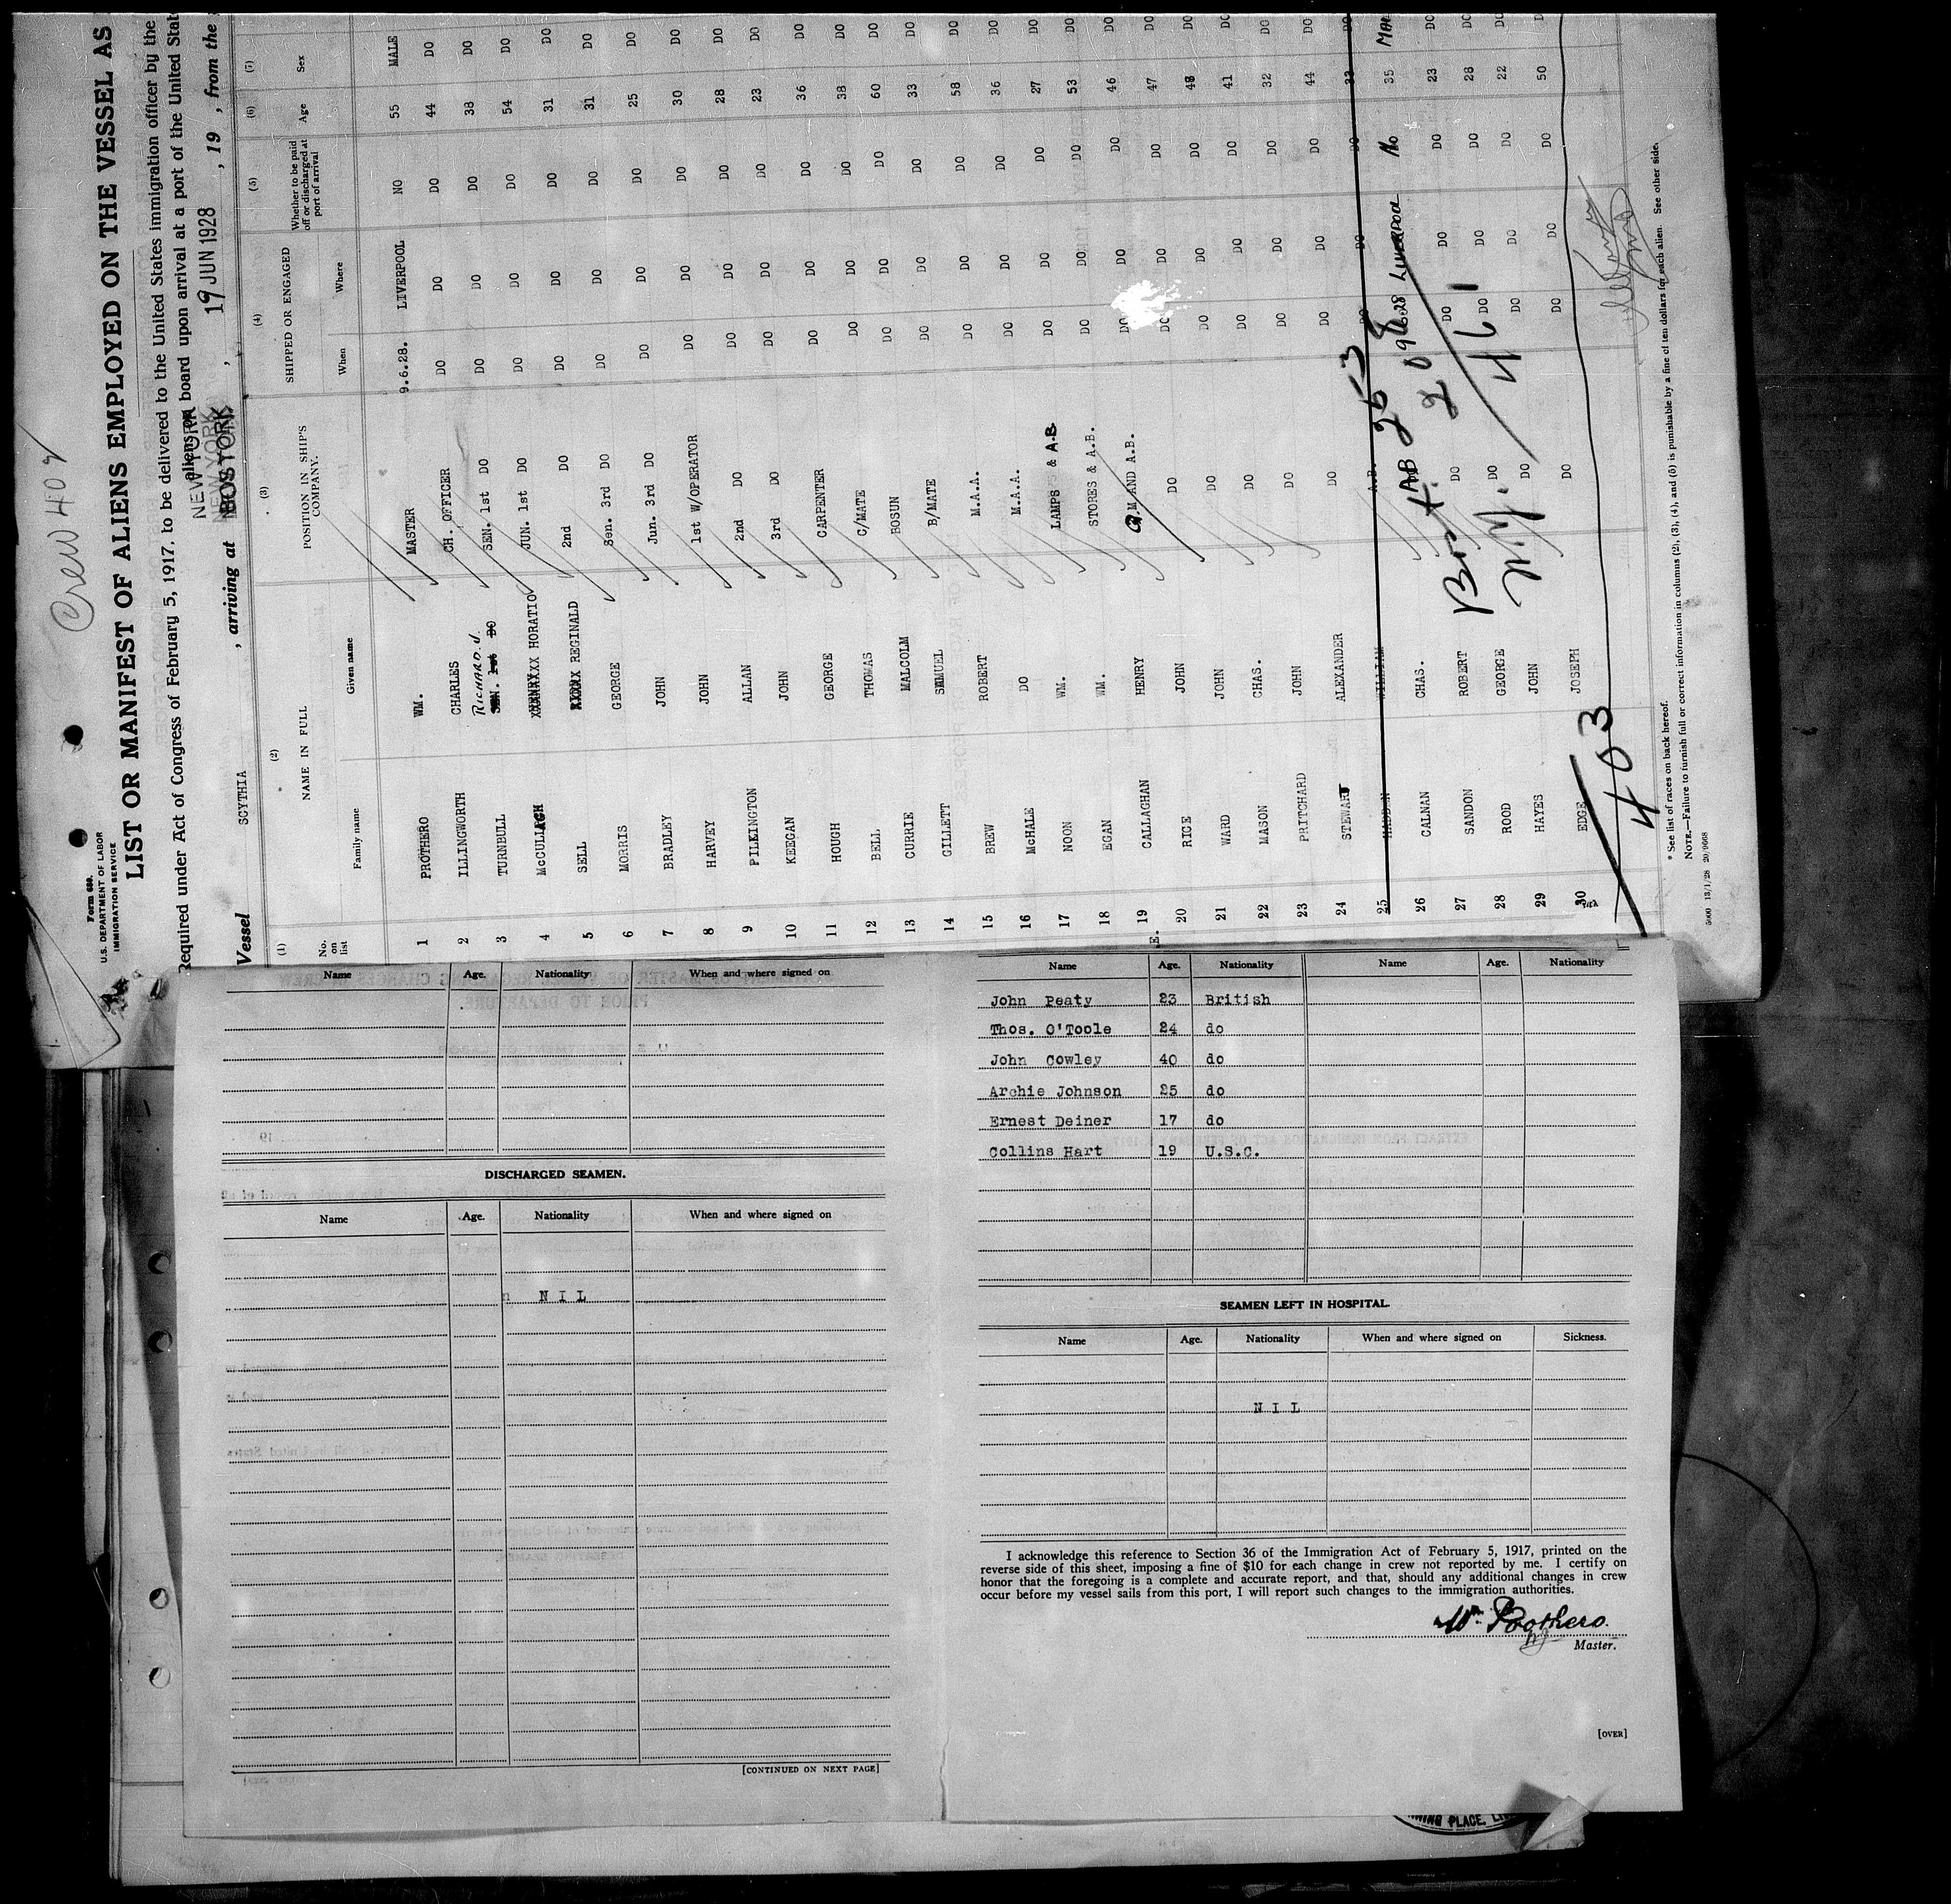 Crew 402
Form 680.
U.S. DEPARTMENT OF LABOR
IMMIGRATION SERVICE
LIST OR MANIFEST OF ALIENS EMPLOYED ON THE VESSEL AS
Required under Act of Congress of February 5, 1917, to be delivered to the United States immigration officer by the
aliens on board upon arrival at a port of the United Stat
NEW YORK
NEW YORK
Vessel SCYTHIA , arriving at BOSTON , 19 JUN 1928 , 19 , from the
(1) (2) (3) (4) (5) (6) (7)
No. on list NAME IN FULL POSITION IN SHIP'S COMPANY. SHIPPED OR ENGAGED Whether to be paid off or discharged at port of arrival Age Sex
Family name Given name When Where
1 PROTHERO WM. MASTER 9.6.28. LIVERPOOL NO 55 MALE
2 ILLINGWORTH CHARLES CH. OFFICER DO DO DO 44 DO
3 TURNBULL RICHARD. J. SEN. 1st DO DO DO DO 38 DO
4 McCULLAGH HORATIO JUN. 1st DO DO DO DO 54 DO
5 SELL REGINALD 2nd DO DO DO DO 31 DO
6 MORRIS GEORGE Sen. 3rd DO DO DO DO 31 DO
7 BRADLEY JOHN Jun. 3rd DO DO DO DO 25 DO
8 HARVEY JOHN 1st W/OPERATOR DO DO DO 30 DO
9 PILKINGTON ALLAN 2nd DO DO DO DO 28 DO
10 KEEGAN JOHN 3rd DO DO DO DO 23 DO
11 HOUGH GEORGE CARPENTER DO DO DO 36 DO
12 BELL THOMAS C/MATE DO DO DO 38 DO
13 CURRIE MALCOLM BOSUN DO DO DO 60 DO
14 GILLETT SAMUEL B/MATE DO DO DO 33 DO
15 BREW ROBERT M.A.A. DO DO DO 58 DO
16 McHALE DO M.A.A. DO DO DO 36 DO
17 NOON WM. LAMPS & A.B DO DO DO 27 DO
18 EGAN WM. STORES & A.B. DO DO DO 53 DO
19 CALLAGHAN HENRY Q.M. AND A.B. DO DO DO 46 DO
20 RICE JOHN DO DO DO DO 47 DO
21 WARD JOHN DO DO DO DO 48 DO
22 MASON CHAS. DO DO DO DO 41 DO
23 PRITCHARD JOHN DO DO DO DO 32 DO
24 STEWART ALEXANDER DO DO DO DO 44 DO
25 MADDEN WILLIAM A.B. DO DO DO 33 DO
26 CALNAN CHAS. AB 9.6.28 LIVERPOOL No 35 MALE
27 SANDON ROBERT DO DO DO DO 23 DO
28 ROOD GEORGE DO DO DO DO 28 DO
29 HAYES JOHN DO DO DO DO 22 DO
30 EDGE JOSEPH DO DO DO DO 50 D
403
* See list of races on back hereof.
NOTE.—Failure to furnish full or correct information in columns (2), (3), (4), and (5) is punishable by a fine of ten dollars for each alien. See other side.
5000 13/1/28 20/9668
Name Age. Nationality When and where signed on
DISCHARGED SEAMEN.
Name Age. Nationality When and where signed on
N I L
[CONTINUED ON NEXT PAGE]
Name Age. Nationality Name Age. Nationality
John Peaty 23 British
Thos. O'Toole 24 do
John Cowley 40 do
Archie Johnson 25 do
Ernest Deiner 17 do
Collins Hart 19 U.S.C.
SEAMEN LEFT IN HOSPITAL.
Name Age. Nationality When and where signed on Sickness.
N I L
I acknowledge this reference to Section 36 of the Immigration Act of February 5, 1917, printed on the
reverse side of this sheet, imposing a fine of $10 for each change in crew not reported by me. I certify on
honor that the foregoing is a complete and accurate report, and that, should any additional changes in crew
occur before my vessel sails from this port, I will report such changes to the immigration authorities.
Wm. Prothero.
Master.
[OVER]